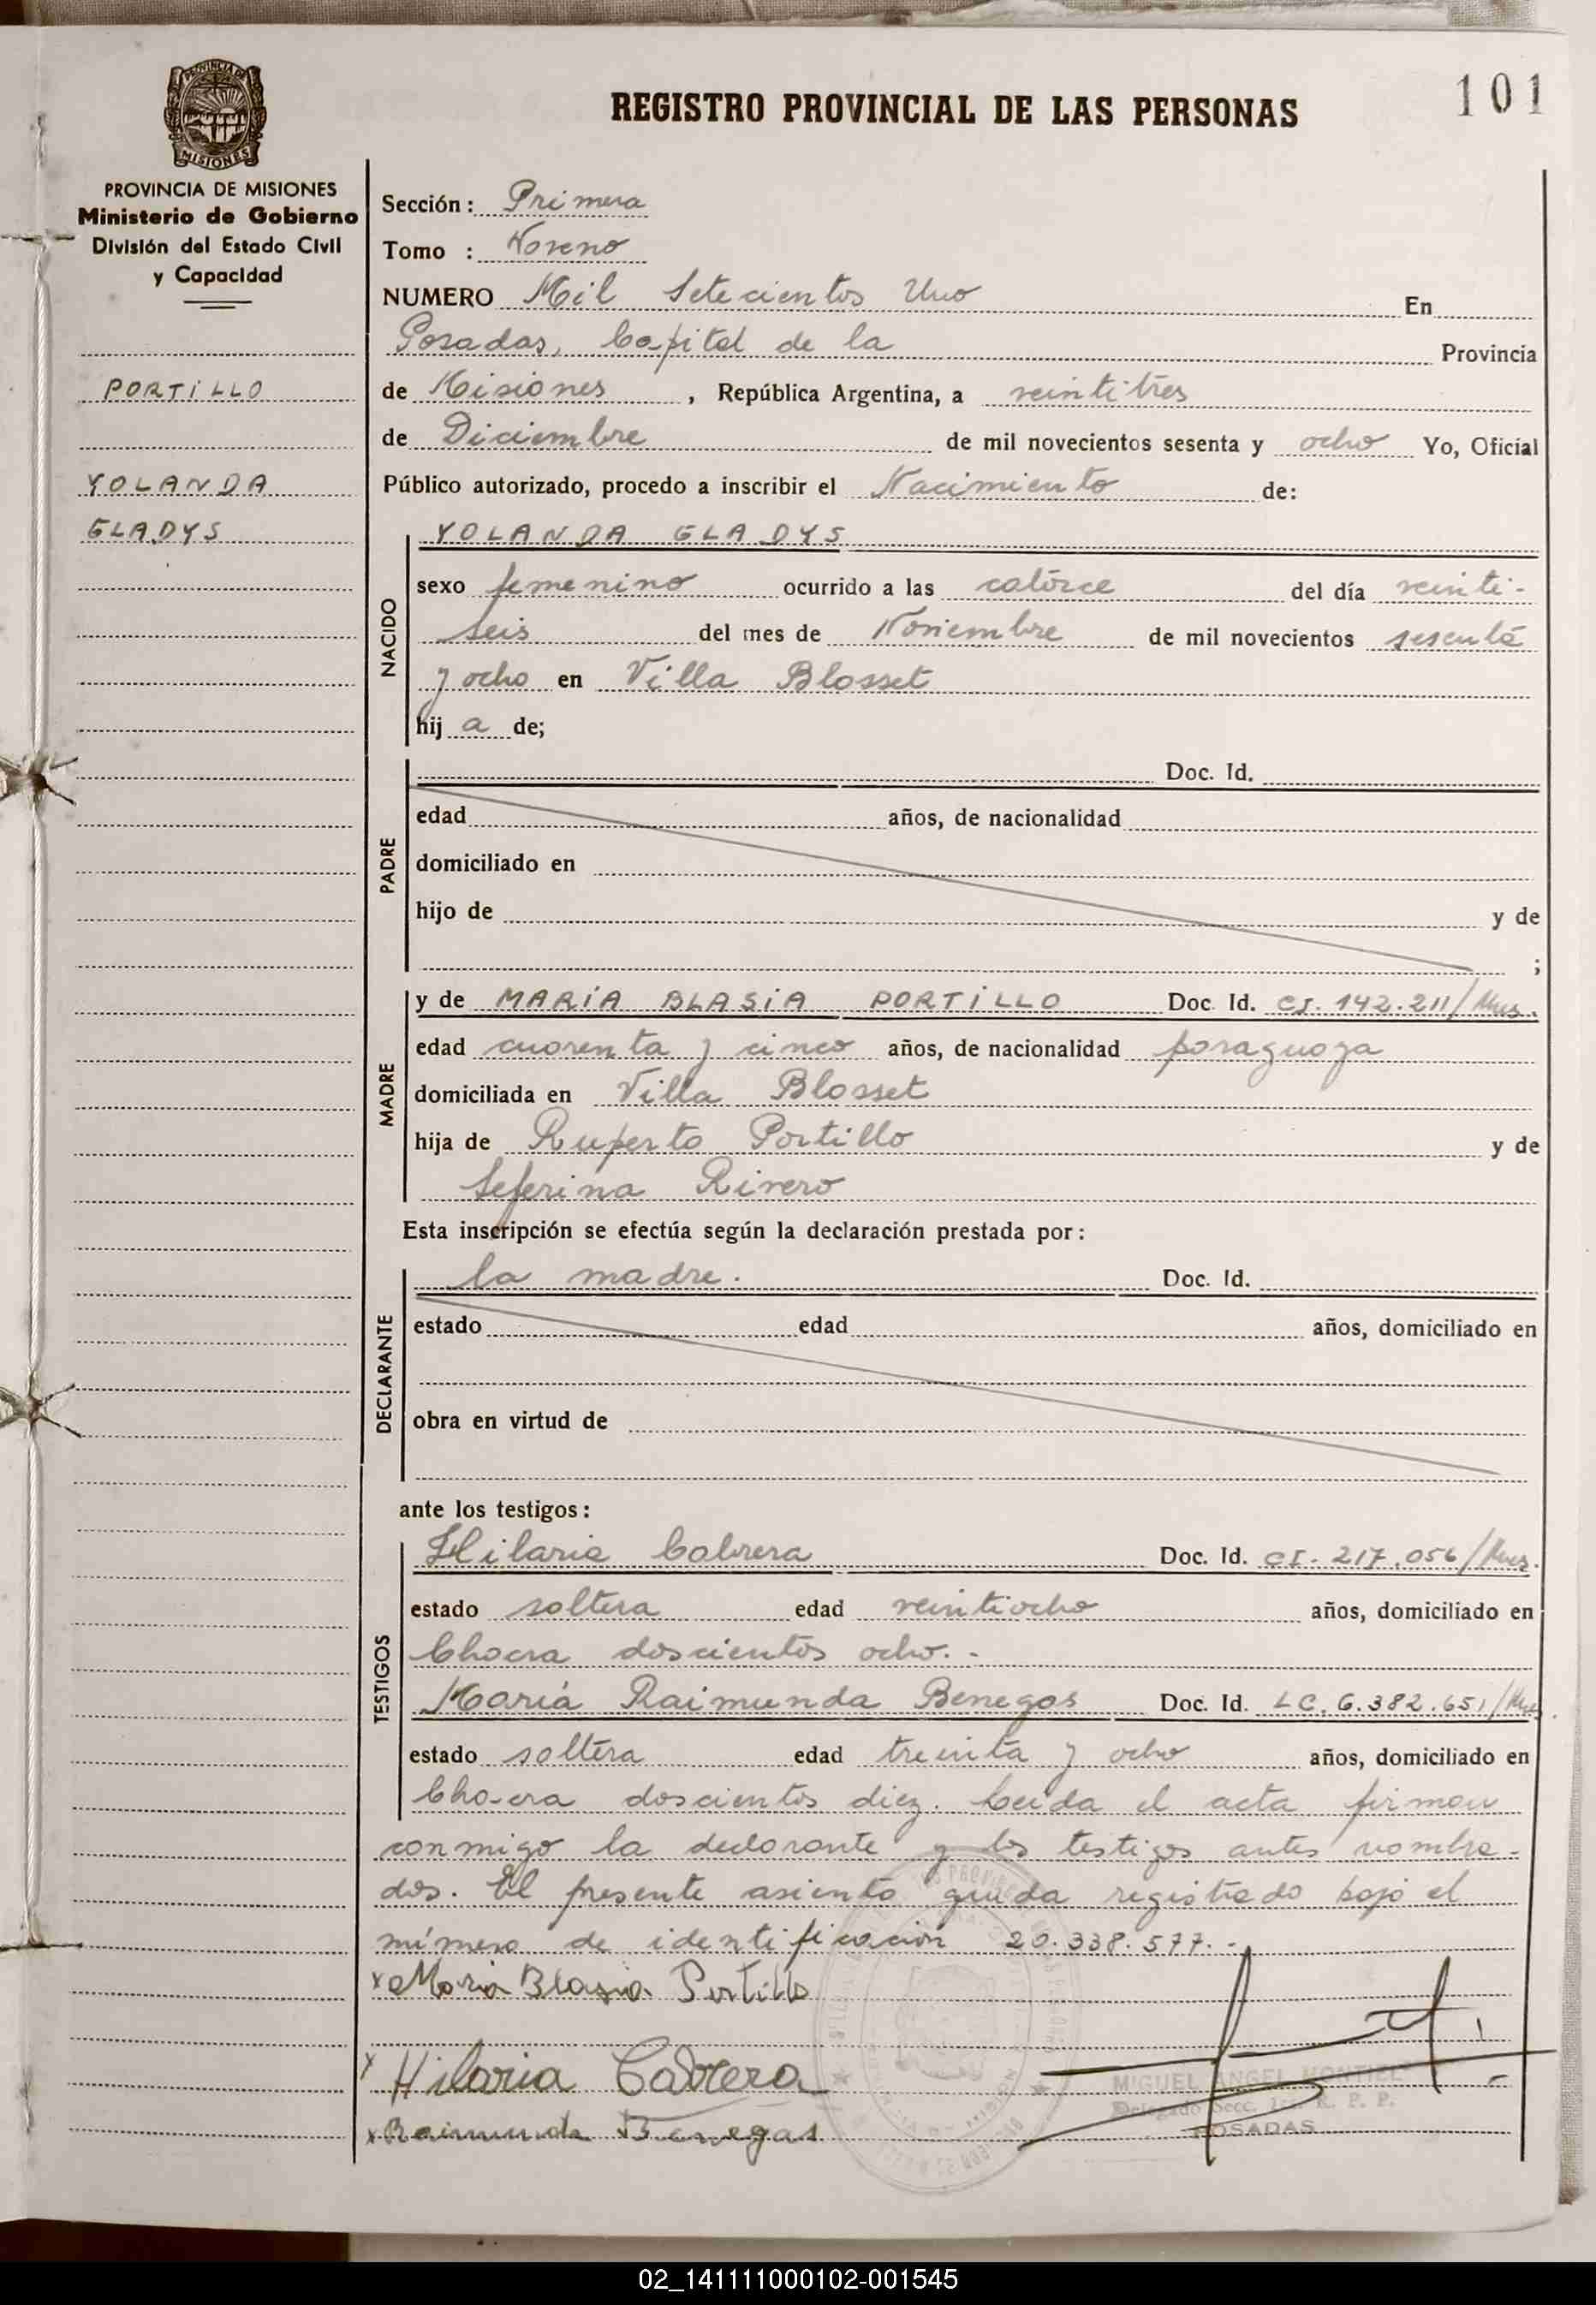 101
REGISTRO PROVINCIAL DE LAS PERSONAS
PROVINCIA DE MISIONES
PROVINCIA DE MISIONES
Ministerio de Gobierno
División del Estado Civil
y Capacidad
PORTILLO
YOLANDA
GLADYS
Sección: Primera
Tomo : Noveno
NUMERO Mil Setecientos Uno En
Posadas, Capital de la Provincia
de Misiones, República Argentina, a veintitres
de Diciembre de mil novecientos sesenta y ocho Yo, Oficial
Público autorizado, procedo a inscribir el Nacimiento de:
NACIDO
YOLANDA GLADYS
sexo femenino ocurrido a las catorce del día veinti-
seis del mes de Noviembre de mil novecientos sesenta
y ocho en Villa Blosset
hij a de;
PADRE
Doc. Id.
edad años, de nacionalidad
domiciliado en
hijo de y de
;
MADRE
y de MARIA BLASIA PORTILLO Doc. Id. CI. 142.211/Mnes.
edad cuarenta y cinco años, de nacionalidad paraguaya
domiciliada en Villa Blosset
hija de Ruperto Portillo y de
Seferina Rivero
Esta inscripción se efectúa según la declaración prestada por:
DECLARANTE
la madre. Doc. Id.
estado edad años, domiciliado en
obra en virtud de
ante los testigos:
TESTIGOS
Hilaria Cabrera Doc. Id. CI. 217.056/Mnes.
estado soltera edad veintiocho años, domiciliado en
Chacra doscientos ocho.-
María Raimunda Benegas Doc. Id. LC. 6.382.651/Mnes.
estado soltera edad treinta y ocho años, domiciliado en
Chacra doscientos diez. Leida el acta firman
conmigo la declarante y los testigos antes nombra-
dos. El presente asiento queda registrado bajo el
número de identificación 20.338.577.-
x Maria Blasia Portillo
x Hilaria Cabrera
x Raimunda Benegas
MIGUEL ANGEL MONTIEL
Delegado Secc. 1ra. R. P. P.
POSADAS
02_141111000102-001545